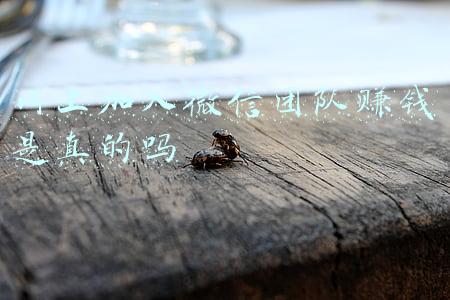 网上加入微信团队赚钱
是真的吗